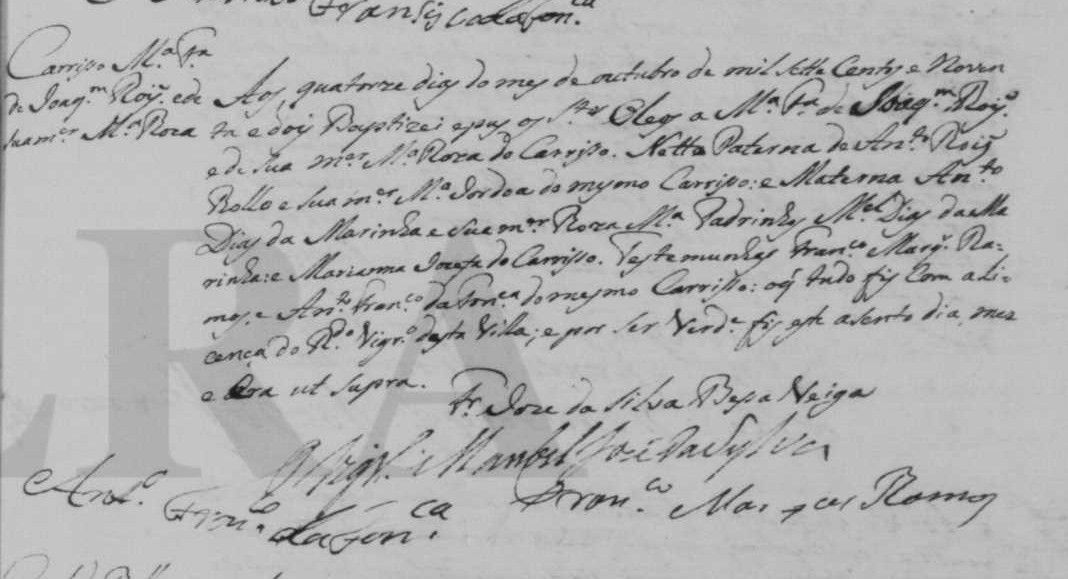 Fran.co da Fon.ca
Carriço M.ª F.ª
de Joaq.m Roiz. e de
sua m.er M.ª Roza
Aos quatorze dias do mes de outubro de mil sette Centos e Noven
ta e dois Baptizei e pus os S.tos Oleos a M.ª F.ª de Joaq.m Roiz.
e de sua m.er M.ª Roza do Carrisso. Netta Paterna de An.to Roiz
Rollo e sua m.er M.ª Jordoa do mesmo Carrisso: e Materna An.to
Dias da Marinha e sua m.er Roza M.ª Padrinhos M.el Dias da Ma
rinha: e Marianna Jozefa do Carrisso. Testemunhas Fran.co Marq.s Ra=
mos, e An.to Fran.co da Fon.ca do mesmo Carrisso: o q tudo fis Com a li=
cença do R.do Vigr.o desta Villa; e por ser Verd.e fis este asento dia, mez
e Era ut supra.
Fr. Joze da Silva Bessa Veiga
O Vigr.o Manoel Joze da Sylva
Ant.o Fran.co da Fon.ca
Fran.co Marques Ramos